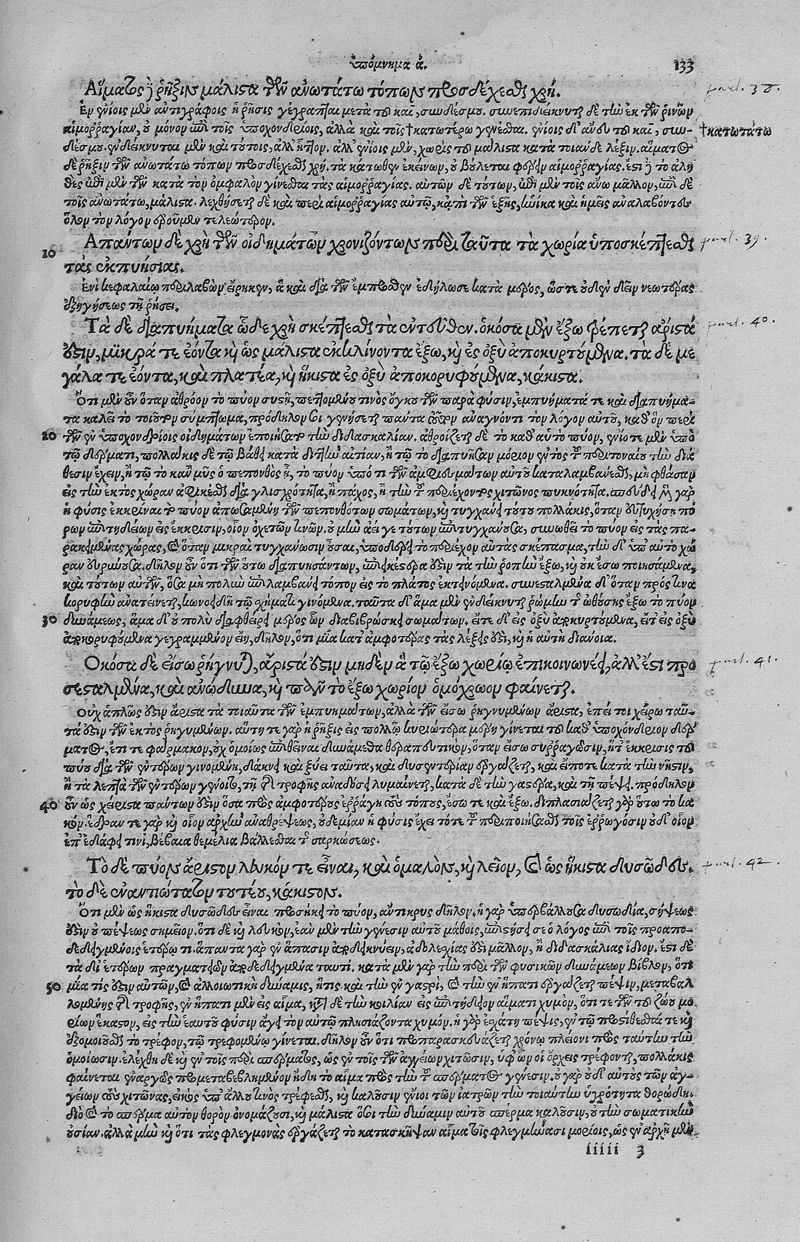 ὑπόμνημα ά. 133
Αἵματος δὲ ῥῆξιν μάλιστα τῶν ἀνωτάτω τόπων προσδέχεσθαι χρή. part. 38.
Ἐν ἐνίοις μὲν ἀντιγράφοις ἡ ῥῆσις γέγραπται μετὰ τοῦ καὶ, συνδέσμου. συνεπιδείκνυται δὲ τὴν ἐκ τῶν ῥινῶν
αἱμορραγίαν, οὐ μόνον ἐπὶ τοῖς ὑποχονδρίοις, ἀλλὰ καὶ τοῖς † κατωτέρω γίνεσθαι. ἐνίοις δ' ἄνευ τοῦ καὶ, συν- † κατωτάτω
δέσμου. ἐνδείκνυται μὲν καὶ τούτοις, ἀλλ' ἧττον. ἀλλ' ἐνίοις μὲν, χωρὶς τοῦ μάλιστα κατὰ τοιάνδε λέξιν. αἵματος
δὲ ῥῆξιν τῶν ἀνωτάτω τόπων προσδέχεσθαι χρή. τὰ κάτωθεν ἐκείνων, οὐ βούλεται φέρειν αἱμορραγίας. ἔστι δὲ τὸ ἀλη
θὲς ἐπὶ μὲν τῶν κατὰ τὸν ὀμφαλὸν γίνεσθαι τὰς αἱμορραγίας. αὐτῶν δὲ τούτων, ἐπὶ μὲν τοῖς ἄνω μᾶλλον, ἐπὶ δὲ
τοῖς ἀνωτάτω, μάλιστα. λεχθήσεται δὲ καὶ περὶ αἱμορραγίας αὐτῷ, κἀπὶ τῶν ἑξῆς, ὡνίκα καὶ ἡμεῖς ἀναλαβόντες
ὅλον τὸν λόγον ἐροῦμεν τελεώτερον.
10 Ἁπάντων δὲ χρὴ τῶν οἰδημάτων χρονιζόντων περὶ ταῦτα τὰ χωρία ὑποσκέπτεσθαι part. 39.
τὰς ἐκπυήσιας.
Ἑνὶ κεφαλαίῳ περιλαβὼν εἴρηκεν, ἃ καὶ διὰ τῶν ἔμπροσθεν ἐδήλωσε κατὰ μέρος, ὥστε οὐδὲν δεῖν νεωτέρας
ἐξηγήσεως τῇ ῥήσει.
Τὰ δὲ διαπυήματα ὧδε χρὴ σκέπτεσθαι τὰ ἐντεῦθεν. ὁκόσα μὲν ἔξω τρέπεται ἄριστά part. 40.
ἐστιν, μικρά τε ἐόντα καὶ ὡς μάλιστα ἐκκλίνοντα ἔξω, καὶ ἐς ὀξὺ ἀποκυρτούμενα. τὰ δὲ με
γάλα τε ἐόντα, καὶ πλατέα, καὶ ἥκιστα ἐς ὀξὺ ἀποκορυφούμενα, κάκιστα.
Ὅτι μὲν οὖν ὅταν ἀθρόον τὸ πῦον συστῇ, περὶ τόν τινος ὄγκου τῶν παρὰ φύσιν, ἐμπυήματά τε καὶ διαπυήμα-
τα καλεῖ τὸ τοιοῦτον σύμπτωμα, πρόδηλόν σοι γενήσεται πάντα ἐφεξῆς ἀναγνόντι τὸν λόγον αὐτοῦ, καθ' ὃν περὶ
20 τῶν ἐν ὑποχονδρίοις οἰδημάτων ἐποιήσατο τὴν διδασκαλίαν. ἀθροίζεται δὲ τὸ καθ' αὑτὸ πῦον, ἐνίοτε μὲν ὑπὸ
τῷ δέρματι, πολλάκις δὲ τῷ βάθει κατὰ διττὴν αἰτίαν, ἢ τῷ τὸ διαπυῆσαν μόριον ἐντὸς τοῦ περιτοναίου τὴν διά-
θεσιν ἔχειν, ἢ τῷ τὸ κἂν μῦς ὁ πεπονθὼς ᾖ, τὸ πῦον ὑπό τι τῶν ἀμφιεσμάτων αὐτοῦ καταλαμβάνεσθαι, μὴ φθάσαν
εἰς τὴν ἐκτὸς χώραν ἀφικέσθαι διὰ γλισχρότητα, ἢ πάχος, ἢ τὴν τοῦ περιέχοντος χιτῶνος πυκνότητα. σπεύδει μὲν γὰρ
ἡ φύσις ἐκκρῖναι τὸ πῦον ἀπωσαμένη τῶν πεπονθότων σωμάτων, καὶ τυγχάνει τούτου πολλάκις, ὅταν εὐτυχήσῃ πό
ρων ἐπιτηδείων εἰς ἔκκρισιν, οἷον ὀχετῶν τινῶν. οὐ μὴν ἀεί γε τούτων ἐπιτυγχάνουσα, συνωθεῖ τὸ πῦον εἰς τὰς πα-
ρακειμένας χώρας, καὶ ὅταν μικραὶ τυγχάνωσιν οὖσαι, ὑποδέρει τὸ περιέχον αὐτὰς σκέπασμα, τὴν δ' ὑπ' αὐτὸ χώ
ραν εὐρύνουσα. δῆλον οὖν ὅτι τῶν οὕτω διαπυησάντων, ἐπιεικέστερά ἐστιν τὰ τὴν ῥοπὴν ἔξω, καὶ οὐκ ἔσω ποιησάμενα,
καὶ τούτων αὐτῶν, ὅσα μὴ πολὺν ἐπιλαμβάνει τόπον εἰς τὸ πλάτος ἐκτεινόμενα. συνεσταλμένα δ' ὅταν πρός τινα
κορυφὴν ἀνατείνεται, κωνοειδῆ τῷ σχήματι γινόμενα. ταῦτα δ' ἅμα μὲν ἐνδείκνυται ῥώμην τῆς ὠθούσης ἔξω τὸ πῦον
30 δυνάμεως, ἅμα δ' οὐ πολὺ διαφθεῖραι μέρος τῶν διαβιβρωσκομένων σωμάτων. εἴτε δ' εἰς ὀξὺ ἀποκυρτούμενα, εἴτ' εἰς ὀξὺ
ἀποκορυφούμενα γεγραμμένον εἴη, δῆλον, ὅτι μία κατ' ἀμφοτέρας τὰς λέξεις ἐστὶ, καὶ ἡ αὐτὴ διάνοια.
Ὁκόσα δὲ εἴσω ῥήγνυται, ἄριστά ἐστιν μηδὲν ἃ τῷ ἔξω χωρίῳ ἐπικοινωνέει, ἀλλ' ἔστι προ part. 41.
σεσταλμένα, καὶ ἀνώδυνα, καὶ πᾶν τὸ ἔξω χωρίον ὁμόχροον φαίνεται.
Οὐχ ἁπλῶς ἐστιν ἄριστα τὰ τοιαῦτα τῶν ἐμπυημάτων, ἀλλὰ τῶν εἴσω ῥηγνυμένων ἄριστα, ἐπεί τοι χείρω ταῦ-
τά ἐστιν τῶν ἐκτὸς ῥηγνυμένων. αὕτη τε γὰρ ἡ ῥῆξις ἐς πολλῷ κυριώτερα μέρη γίνεται τοῦ καθ' ὑποχόνδριον δέρ
ματος, ἔτι τε φάρμακον, οὐχ ὁμοίως ἐπιθεῖναι δυνάμεθα θεραπευτικὸν, ὅταν εἴσω συρραγῶσιν, ἥ τ' ἔκκρισις τοῦ
πύου διὰ τῶν ἐντέρων γινομένη, δάκνει καὶ ξύει ταῦτα, καὶ δυσεντερίαν ἐργάζεται, καὶ εἴποτε κατὰ τὴν νῆστιν,
ἢ τὰ λεπτὰ τῶν ἐντέρων γένοιτο, τῇ τῆς τροφῆς ἀναδόσει λυμαίνεται, κατὰ δὲ τὴν γαστέρα, καὶ τῇ πέψει. πρόδηλον
40 οὖν ὡς χείριστα πάντων ἐστὶν ὅσα πρὸς ἀμφοτέρους ἐρράγη τοὺς τόπους, ἔσω τε καὶ ἔξω. διπλασιάζεται γὰρ οὕτω τὸ κα
κόν. ἕδραν τε γὰρ καὶ οἷον ἀρχὴν ἀναθρέψεως, οὐδεμίαν ἡ φύσις ἔχει τότε τοῦ περιποιήσασθαι τοῖς ἐρρωγόσιν οὐδ' οἷον
ἐπ' ἐδάφει τινὶ, βέβαια θεμέλια βάλλεσθαι τῆς σαρκώσεως.
Τὸ δὲ πύον ἄριστον λευκόν τε εἶναι, καὶ ὁμαλὸν, καὶ λεῖον, καὶ ὡς ἥκιστα δυσῶδες. part. 42.
τὸ δὲ ἐναντιώτατον τουτέου, κάκιστον.
Ὅτι μὲν ὡς ἥκιστα δυσῶδες εἶναι προσήκει τὸ πῦον, ἄντικρυς δῆλον. ἡ γὰρ ὑπερβάλλουσα δυσωδία, σήψεώς
ἐστιν οὐ πέψεως σημεῖον. ὅτι δὲ καὶ λευκὸν, ἐὰν μὲν τὴν γένεσιν αὐτοῦ μάθοις, ἐπιπείσῃ σε ὁ λόγος ἐπὶ τοῖς προαπο-
δεδειγμένοις ἑτέρωθι. ἅπαντα γὰρ ἐν ἅπασιν ἀποδεικνύειν, ἀδολεσχίας ἐστὶ μᾶλλον, ἢ διδασκαλίας ἴδιον. ἔστι δὲ
τὰ δι' ἑτέρων πραγματειῶν ἀποδεδειγμένα ταυτὶ, κατὰ μὲν γὰρ τὴν περὶ τῶν φυσικῶν δυνάμεων βίβλον, ὅτι
50 μία τίς ἐστιν αὐτῶν, καὶ ἀλλοιωτικὴ δύναμις, ἥτις καὶ τὴν ἐν γαστρὶ, καὶ τὴν ἐν ἥπατι ἐργάζεται πέψιν, μεταβαλ
λομένης τῆς τροφῆς, ἐν ἥπατι μὲν εἰς αἷμα, κατὰ δὲ τὴν κοιλίαν εἰς ἐπιτήδειον αἵματι χυμὸν, ὅτι τε τῶν τοῦ ζώου μο
ρίων ἕκαστον, εἰς τὴν ἑαυτοῦ φύσιν ἄγει τὸν αὐτῷ πλησιάζοντα χυμόν. ἡ γὰρ ἐσχάτη πέψις, ἐν τῷ προστίθεσθαί τε καὶ
ἐξομοιοῦσθαι τὸ τρέφον, τῷ τρεφομένῳ γίνεται. δῆλον οὖν ὅτι προπαρασκευάζεται χρόνῳ πλείονι πρὸς ταύτην τὴν
ὁμοίωσιν. ἐλέχθη δὲ καὶ ἐν τοῖς περὶ σπέρματος, ὡς ἐν τοῖς τῶν ἀγγείων χιτῶσιν, ὑφ' ὧν οἱ ὄρχεις τρέφονται, πολλάκις
φαίνεται ἐναργῶς προμεταβεβλημένον ἤδη τὸ αἷμα πρὸς τὴν τοῦ σπέρματος γένεσιν, ὁ γὰρ εἰς αὐτοὺς τῶν ἀγ-
γείων τοὺς χιτῶνας, ἐκ τοῦ τινος τρέφεσθαι, καὶ καλοῦσιν ἔνιοι τῶν ἰατρῶν τὴν τοιαύτην ὑγρότητα θορώδη.
διὸ καὶ τὸ σπέρμα αὐτὸν θορὸν ὀνομάζουσι, καὶ μάλιστα ὅσοι τὴν δύναμιν αὐτοῦ σπέρμα καλοῦσιν, οὐ τὴν σωματικὴν
οὐσίαν. ἀλλὰ μὴν καὶ ὅτι τὰς φλεγμονὰς ἐργάζεται τὸ κατασκῆψαν αἷμα τοῖς φλεγμήνασι μορίοις, ὡς ἐν ἀρχῇ μὲν
iiiii 3